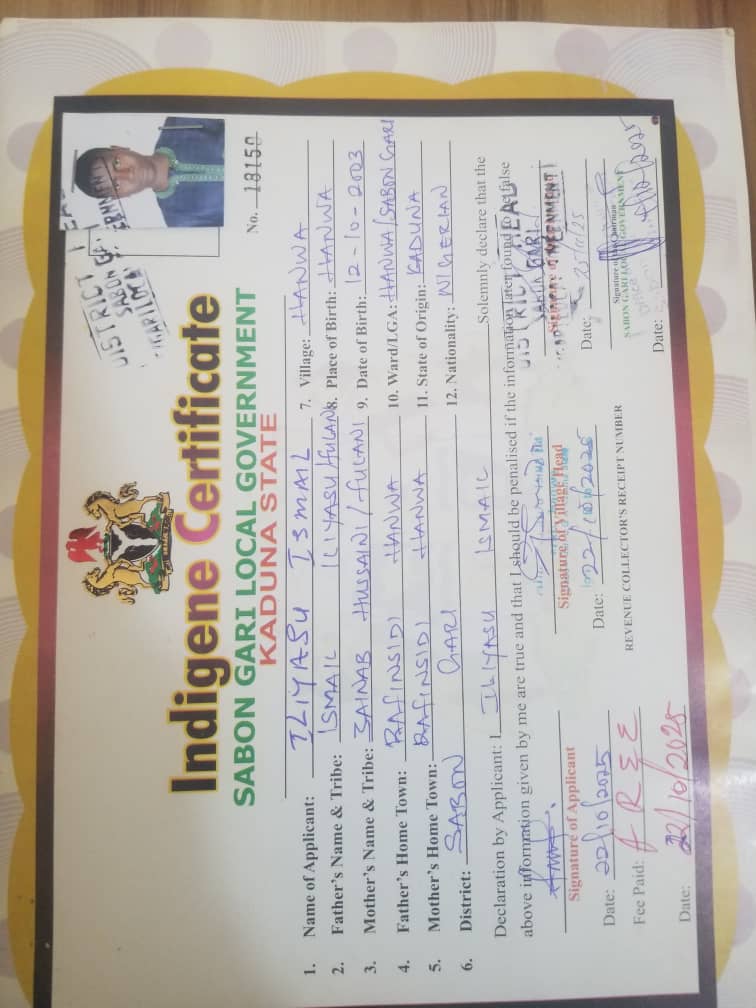 DISTRICT HEAD
SABON GARI
No. 18150
Indigene Certificate
SABON GARI LOCAL GOVERNMENT
KADUNA STATE
1. Name of Applicant: ILIYASU ISMAIL
2. Father's Name & Tribe: ISMAIL ILIYASU/FULANI
3. Mother's Name & Tribe: SAINAB HUSSAINI/FULANI
4. Father's Home Town: RAFINSIDI HANWA
5. Mother's Home Town: RAFINSIDI HANWA
6. District: SABON GARI
7. Village: HANWA
8. Place of Birth: HANWA
9. Date of Birth: 12-10-2003
10. Ward/LGA: HANWA/SABON GARI
11. State of Origin: KADUNA
12. Nationality: NIGERIAN
Declaration by Applicant: I ILIYASU ISMAIL Solemnly declare that the
above information given by me are true and that I should be penalised if the information later found to be false
Signature of Applicant
Date: 22/10/2025
Signature of Village Head
Date: 22/10/2025
DISTRICT HEAD
Date:
Fee Paid: FREE
REVENUE COLLECTOR'S RECEIPT NUMBER
Signature of the Chairman
SABON GARI LOCAL GOVERNMENT
Date: 22/10/2025
Date: